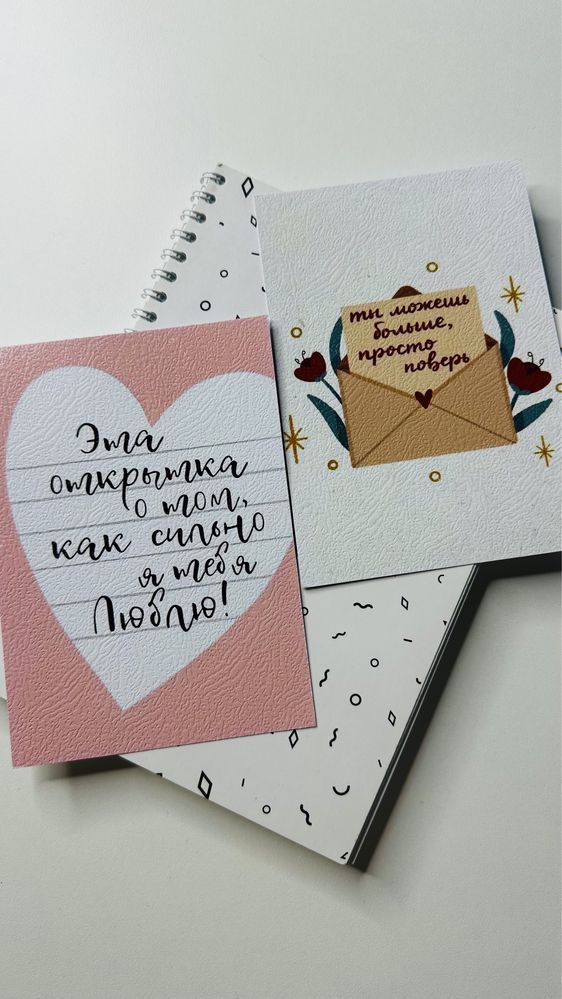 Эта
открытка
о том,
как сильно
я тебя
Люблю!
ты можешь
больше,
просто
поверь